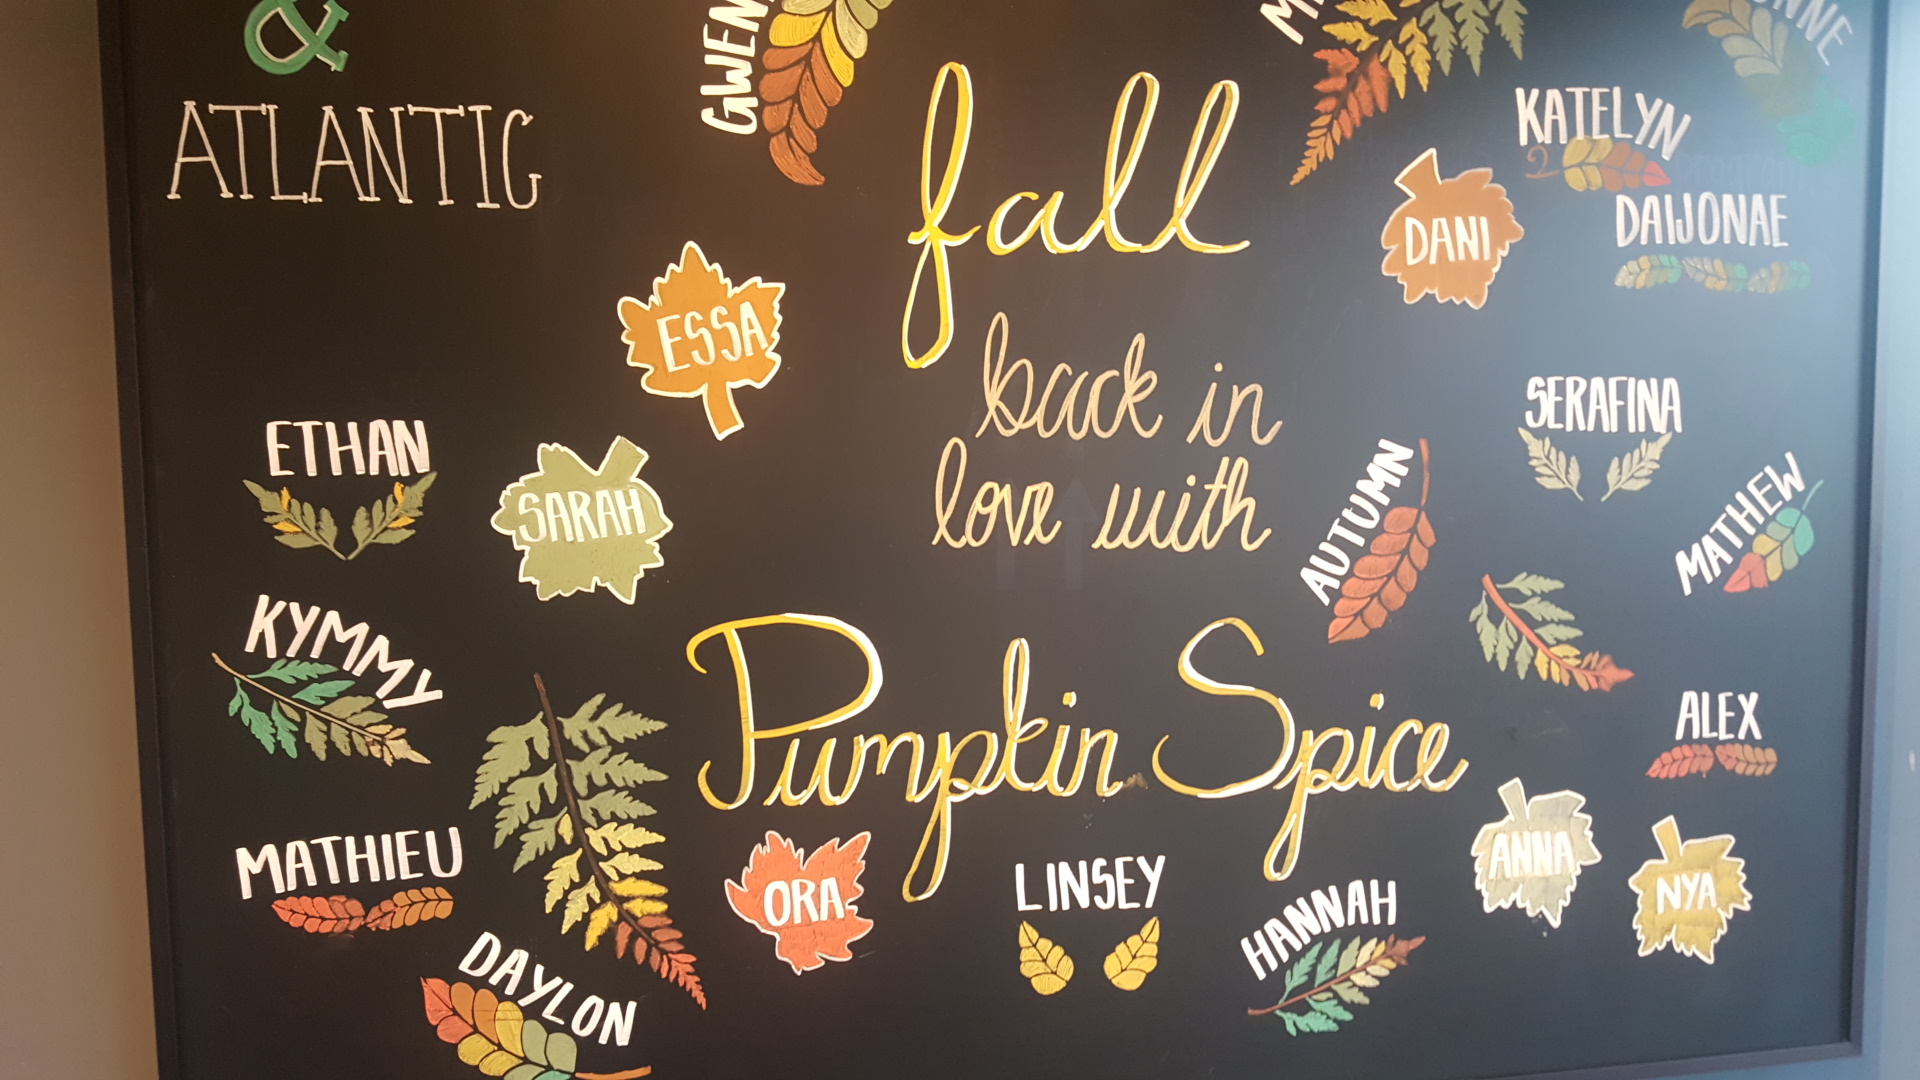 &
ATLANTIC
GWEN
fall
KATELYN
DANI
DAIJONAE
ESSA
back in
love with
ETHAN
SARAH
SERAFINA
AUTUMN
MATHEW
KYMMY
Pumpkin Spice
ALEX
MATHIEU
ORA
LINSEY
HANNAH
ANNA
NYA
DAYLON